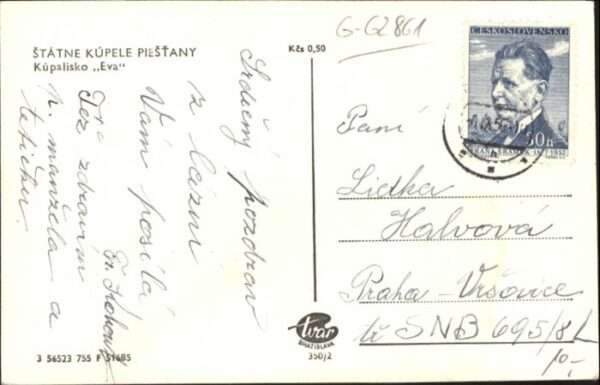 G-G2861
ŠTÁTNE KÚPELE PIEŠŤANY
Kúpalisko „Eva“
Kčs 0,50
ČESKOSLOVENSKO
30 h
Srdečný pozdrav
z lázní
Vám posílá
Též zdravím
p. manžela a
tetičku
Paní
Lidka
Halvová
Praha-Vršovice
tř SNB 695/8
10,-
tvar
BRATISLAVA
350/2
3 56523 755 F 51685